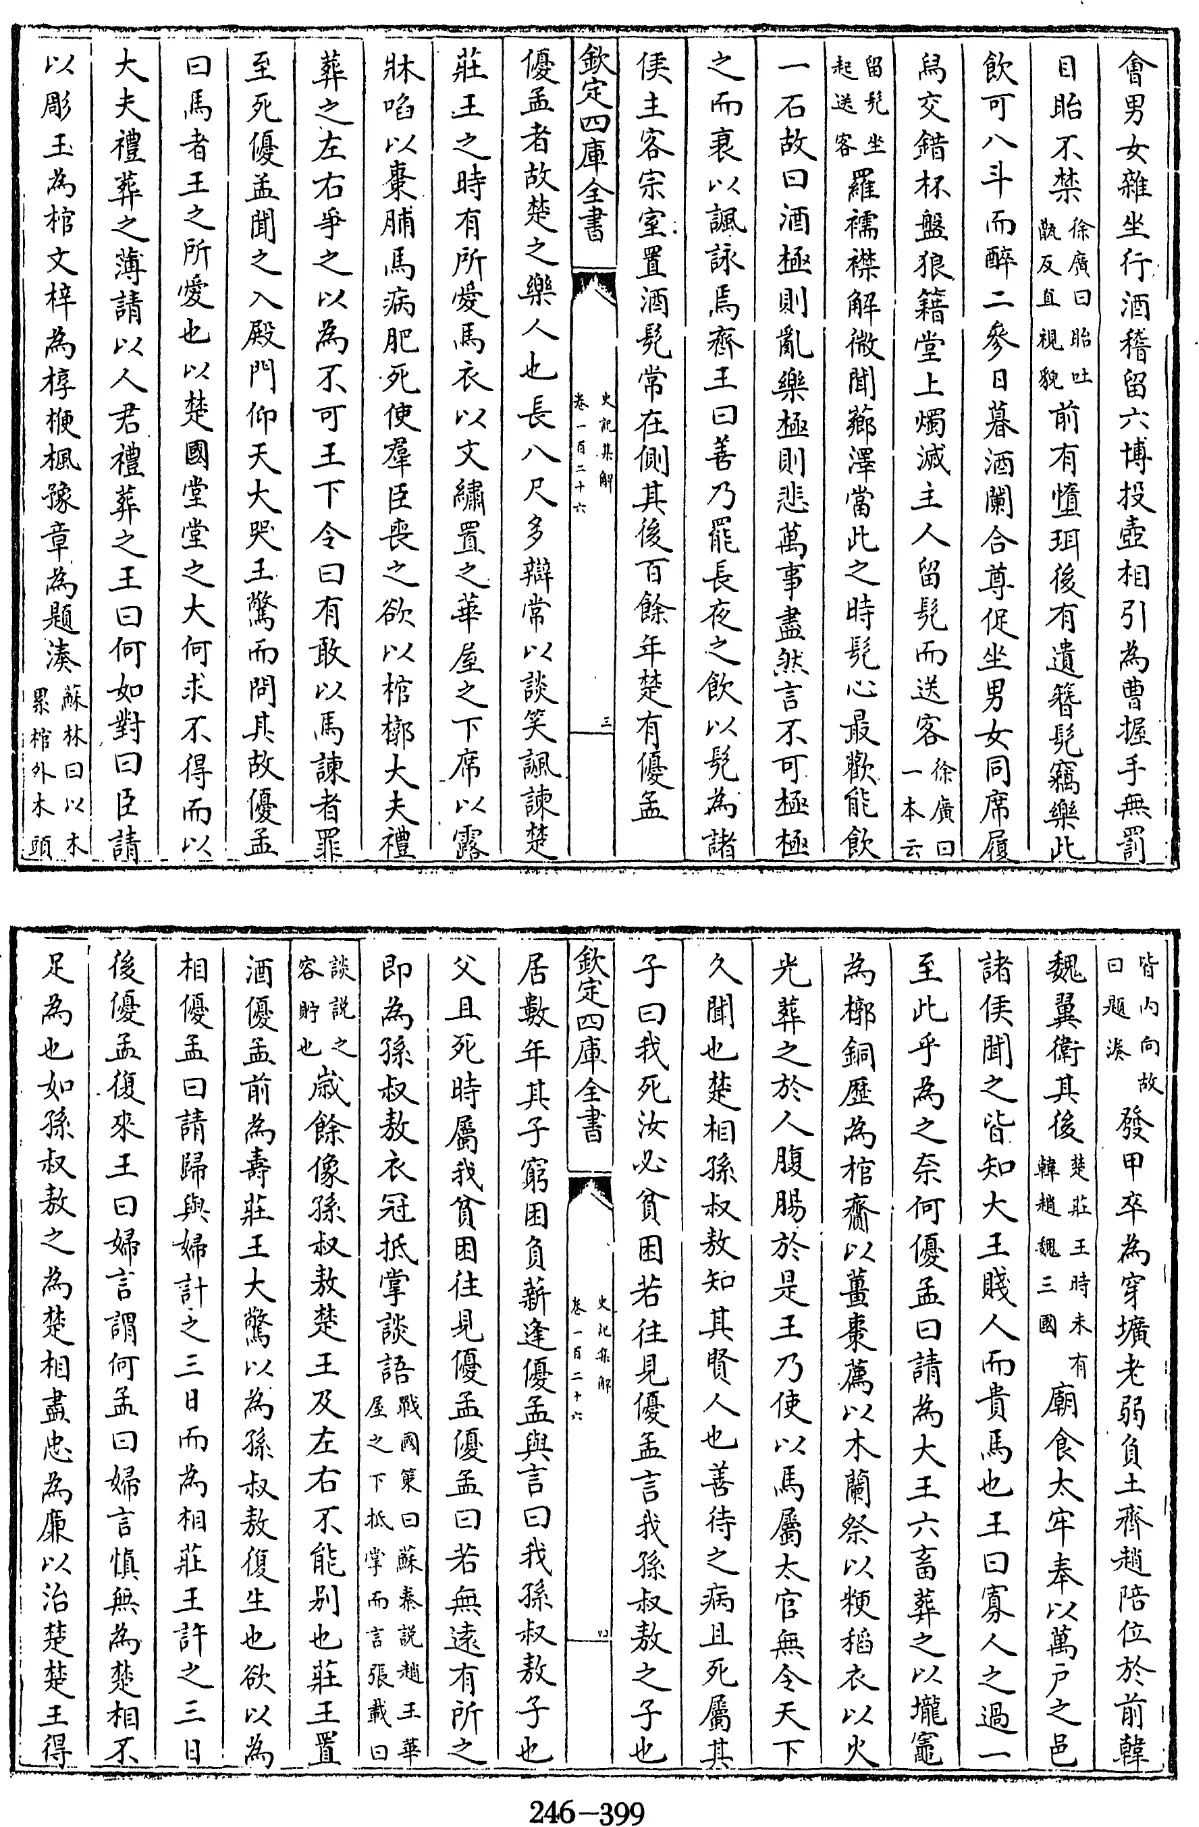 會男女雜坐行酒稽留六博投壺相引為曹握手無罰
目眙不禁徐廣曰眙吐甑反直視貌前有墮珥後有遺簪髠竊樂此
飲可八斗而醉二參日暮酒闌合尊促坐男女同席履
舄交錯杯盤狼籍堂上燭滅主人留髠而送客徐廣曰一本云
留髠坐起送客羅襦襟解微聞薌澤當此之時髠心最歡能飲
一石故曰酒極則亂樂極則悲萬事盡然言不可極極
之而衰以諷詠焉齊王曰善乃罷長夜之飲以髠為諸
侯主客宗室置酒髠常在側其後百餘年楚有優孟
欽定四庫全書
史記集解
卷一百二十六
三
優孟者故楚之樂人也長八尺多辯常以談笑諷諫楚
莊王之時有所愛馬衣以文繡置之華屋之下席以露
牀啗以棗脯馬病肥死使羣臣喪之欲以棺槨大夫禮
葬之左右爭之以為不可王下令曰有敢以馬諫者罪
至死優孟聞之入殿門仰天大哭王驚而問其故優孟
曰馬者王之所愛也以楚國堂堂之大何求不得而以
大夫禮葬之薄請以人君禮葬之王曰何如對曰臣請
以彫玉為棺文梓為椁楩楓豫章為題湊蘇林曰以木累棺外木頭
皆內向故曰題湊發甲卒為穿壙老弱負土齊趙陪位於前韓
魏翼衛其後楚莊王時未有韓趙魏三國廟食太牢奉以萬戶之邑
諸侯聞之皆知大王賤人而貴馬也王曰寡人之過一
至此乎為之奈何優孟曰請為大王六畜葬之以壠竈
為槨銅歷為棺齎以薑棗薦以木蘭祭以粳稻衣以火
光葬之於人腹腸於是王乃使以馬屬太官無令天下
久聞也楚相孫叔敖知其賢人也善待之病且死屬其
子曰我死汝必貧困若往見優孟言我孫叔敖之子也
欽定四庫全書
史記集解
卷一百二十六
四
居數年其子窮困負薪逢優孟與言曰我孫叔敖子也
父且死時屬我貧困往見優孟優孟曰若無遠有所之
即為孫叔敖衣冠抵掌談語戰國策曰蘇秦說趙王華屋之下抵掌而言張載曰
談說之容貯也歲餘像孫叔敖楚王及左右不能别也莊王置
酒優孟前為壽莊王大驚以為孫叔敖復生也欲以為
相優孟曰請歸與婦計之三日而為相莊王許之三日
後優孟復來王曰婦言謂何孟曰婦言慎無為楚相不
足為也如孫叔敖之為楚相盡忠為廉以治楚楚王得
246-399